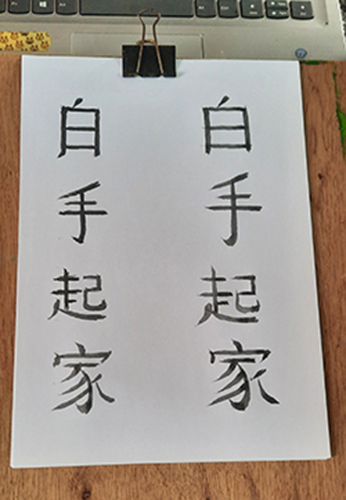 白手起家
白手起家